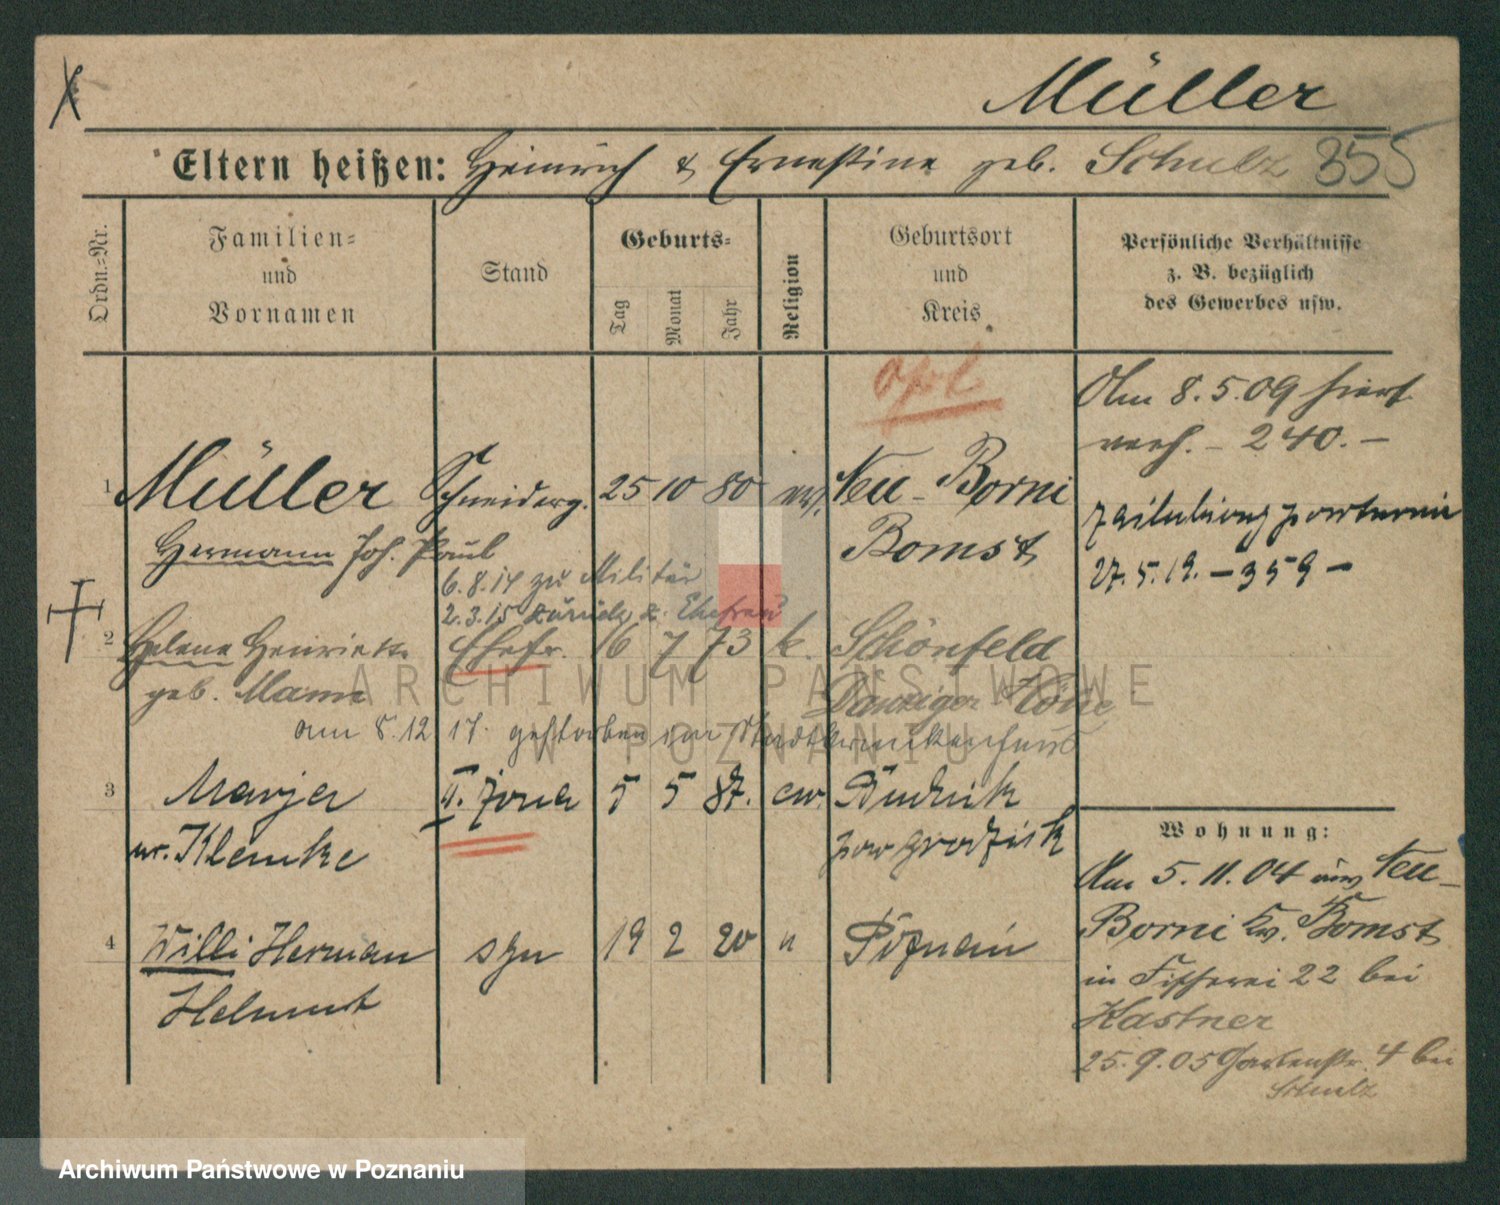 Müller
Eltern heißen: Heinrich & Ernestine geb. Schulz 355
Ordn.-Nr.
Familien-
und
Vornamen
Stand
Geburts-
Tag
Monat
Jahr
Religion
Geburtsort
und
Kreis
Persönliche Verhältnisse
z. B. bezüglich
des Gewerbes usw.
Am 8.5.09 hierf.
verh. – 240. –
1 Müller Schneiderg. 25 10 80 ev. Neu-Borni
Hermann Joh. Paul Bomst
27.5.19. – 359 –
6.8.14 zu Militär
2.3.15 zurück z. Ehefrau
2 Helene Henriette Ehefr. 16 7 73 k. Schönfeld
geb. Mann Danziger Höhe
am 8.12.17. gestorben im Stadtkrankenhaus
3 Marja II. żona 5 5 87. ew. Rudnik
ur. Klemke pow grodzisk
4 Willi Herman syn 19 2 20 n Poznań
Helmut
Wohnung:
Am 5.11.04 aus Neu-
Borni Kr. Bomst
in Fischerei 22 bei
Kastner
25.9.05 Gartenstr. 4 bei
Schulz
ARCHIWUM PAŃSTWOWE
W POZNANIU
Archiwum Państwowe w Poznaniu